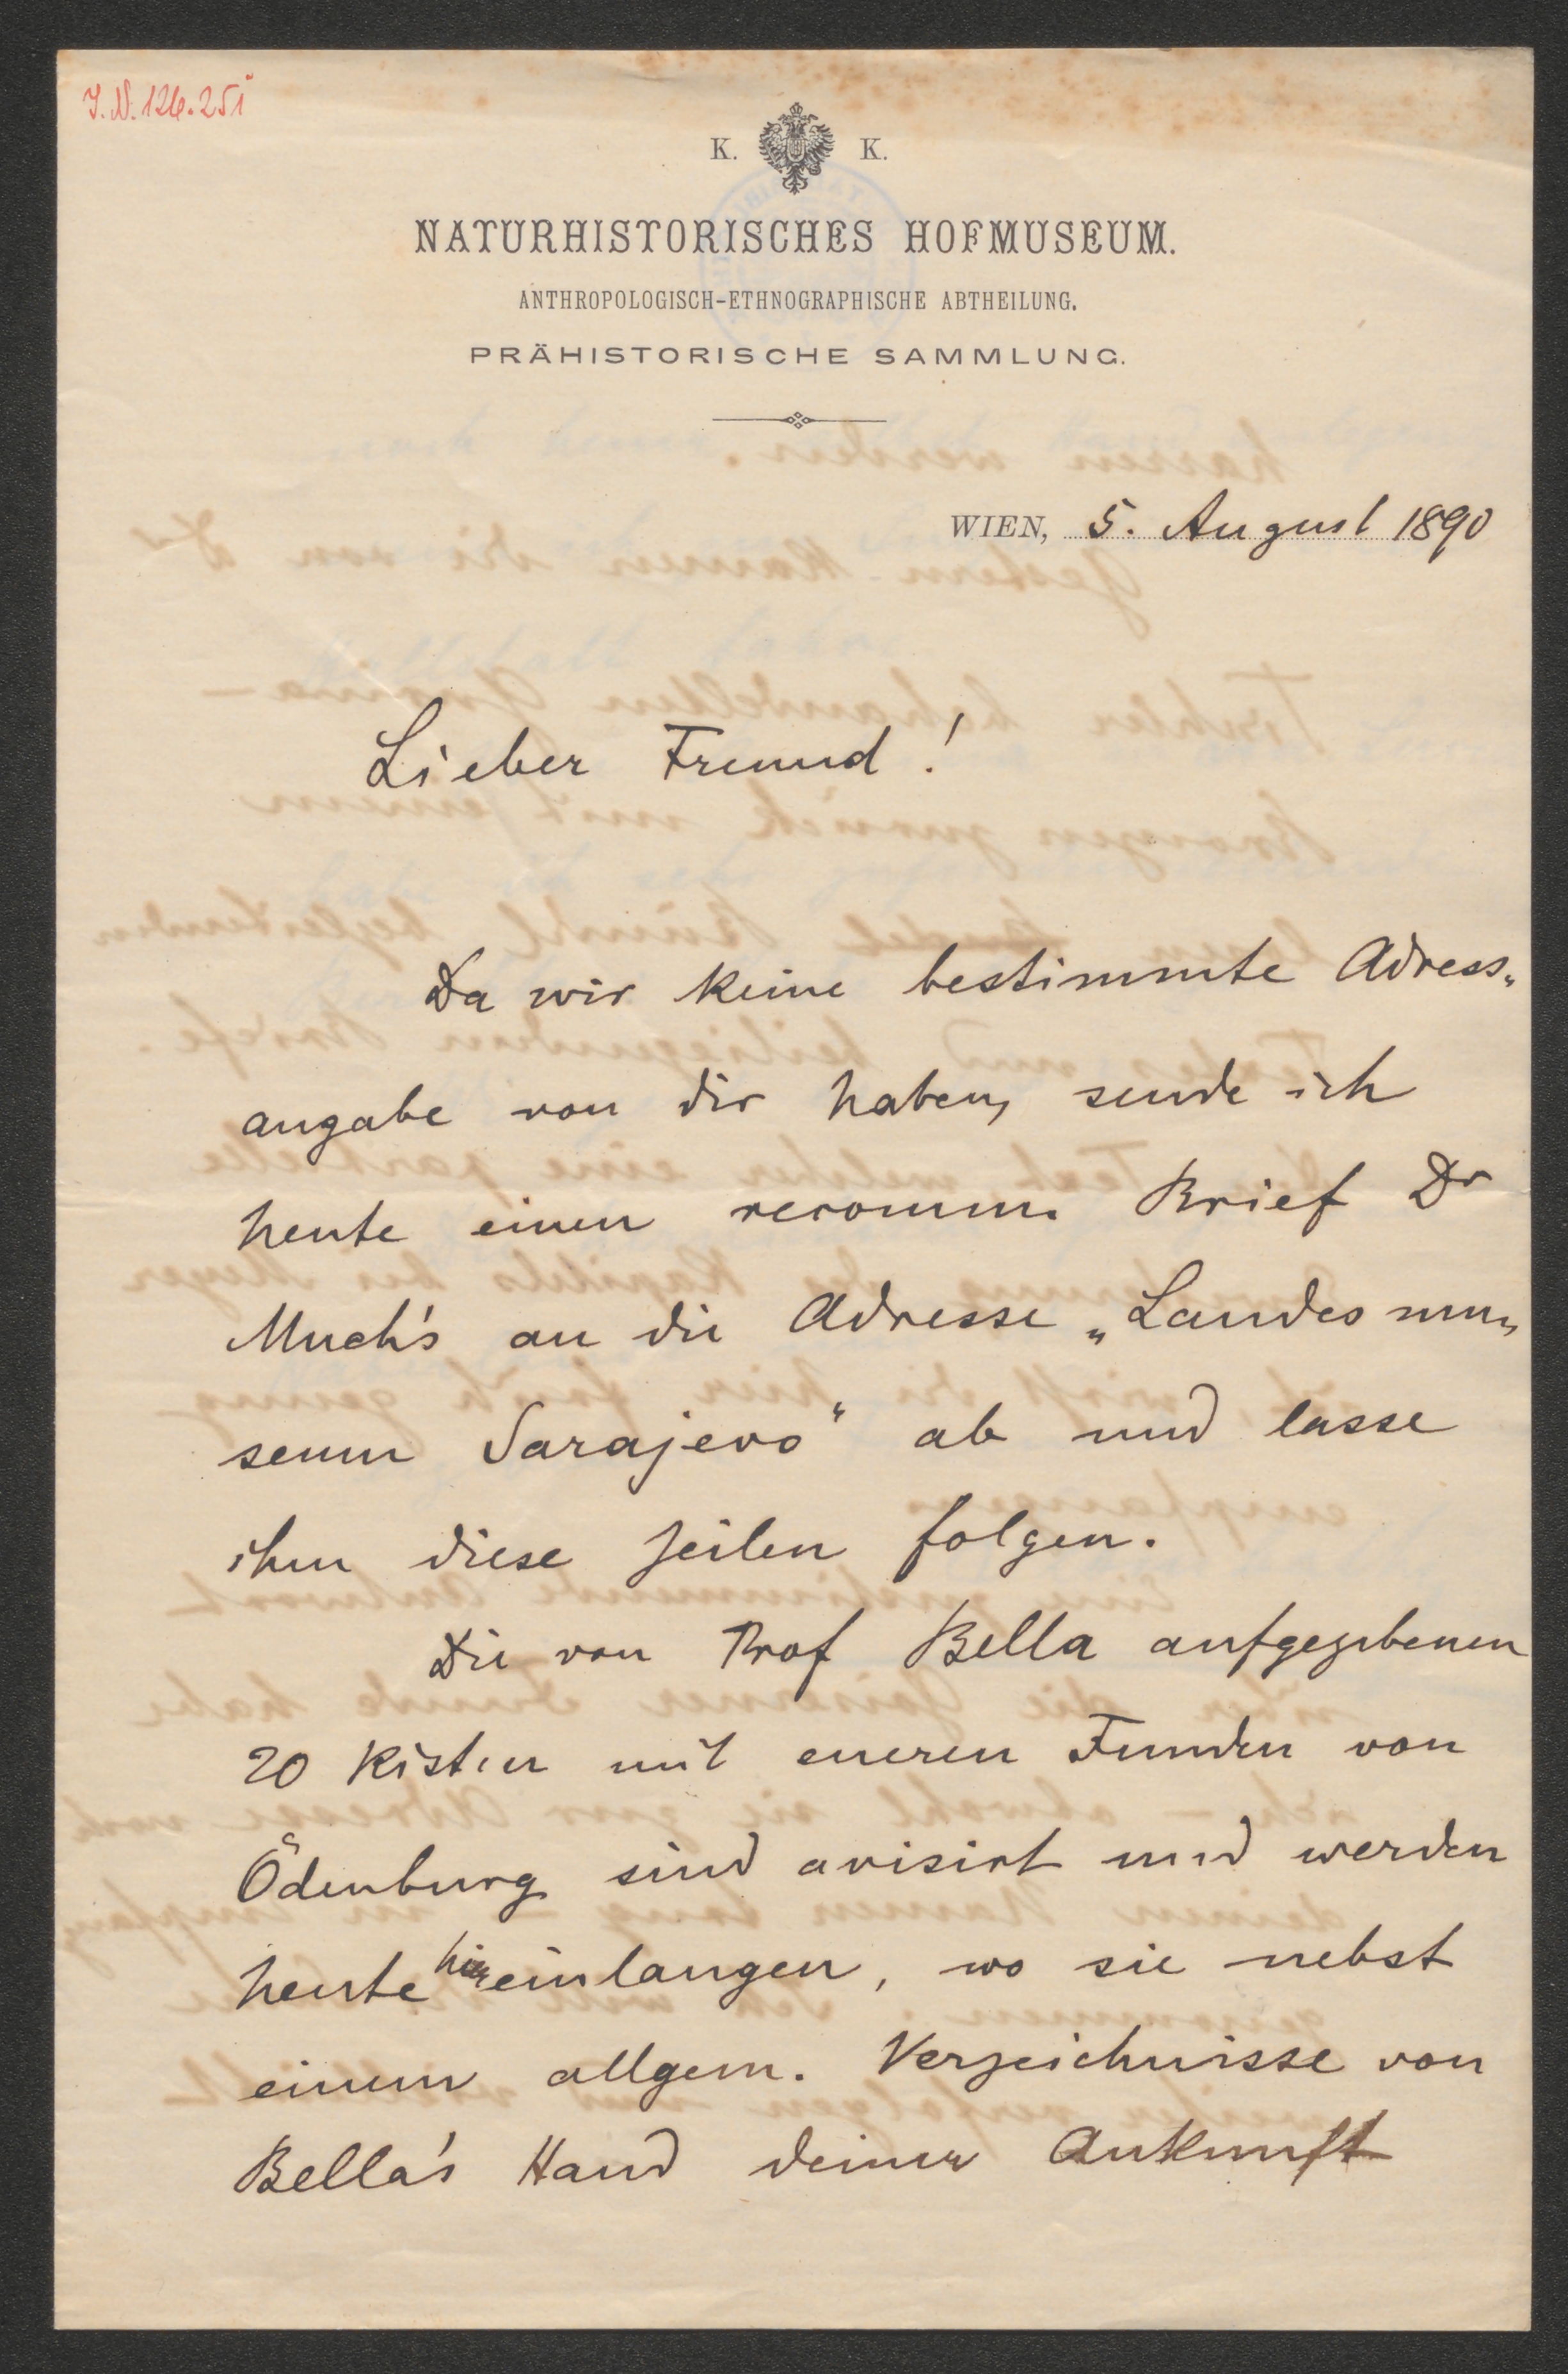 I. N. 126.251
K. K.
NATURHISTORISCHES HOFMUSEUM.
ANTHROPOLOGISCH-ETHNOGRAPHISCHE ABTHEILUNG.
PRÄHISTORISCHE SAMMLUNG.
WIEN, 5. August 1890
Lieber Freund!
Da wir keine bestimmte Adress„
angabe von dir haben, sende ich
heute einen recomm. Brief Dr
Much's an die Adresse „Landesmu„
seum Sarajevo“ ab und lasse
ihm diese Zeilen folgen.
Die von Prof Bella aufgegebenen
20 Kisten mit eueren Funden von
Ödenburg sind avisirt und werden
heute hier einlangen, wo sie nebst
einem allgem. Verzeichnisse von
Bella's Hand deiner Ankunft